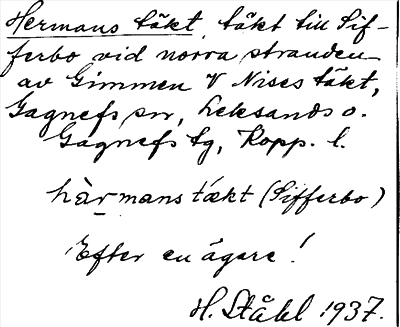 Hermans täkt, täkt till Sif-
ferbo vid norra stranden
av Gimmen V Nises täkt,
Gagnefs sn, Leksands o.
Gagnefs tg, Kopp. l.
hàrmans tækt (Sifferbo)
Efter en ägare!
H. Ståhl 1937.